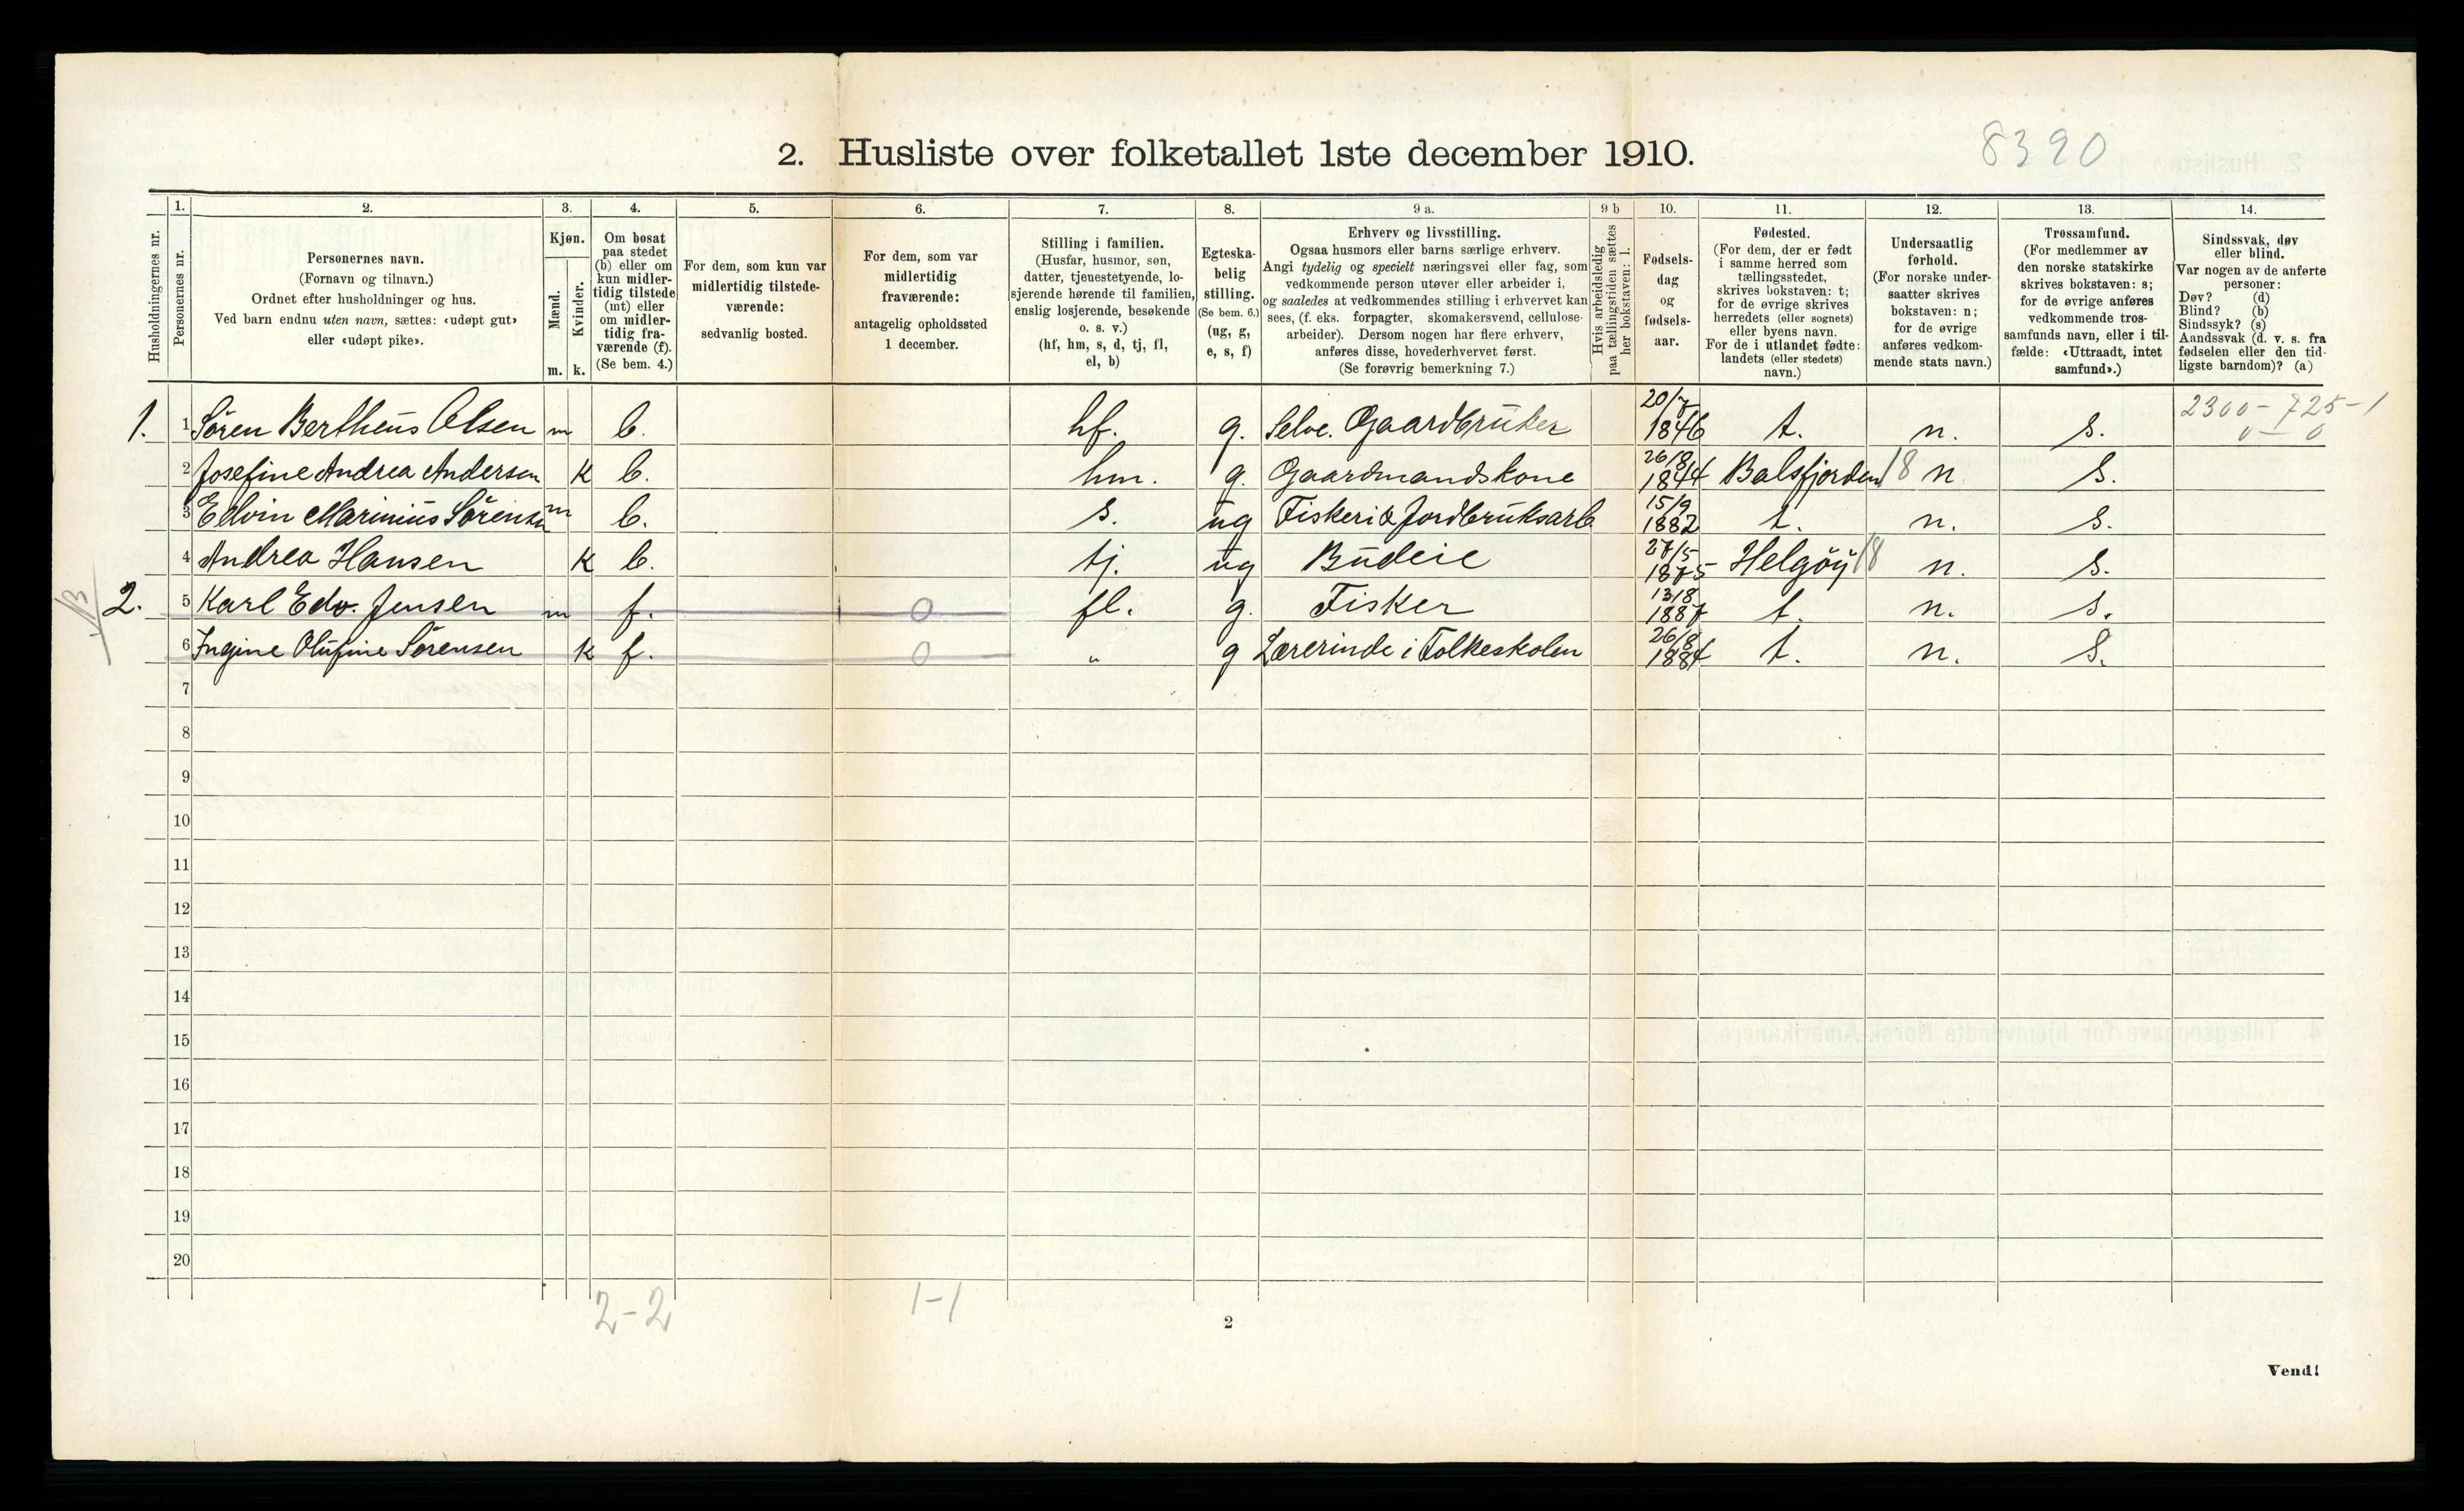 8390
2. Husliste over folketallet 1ste december 1910.
Husholdningernes nr.
1. Personernes nr.
2. Personernes navn.
(Fornavn og tilnavn.)
Ordnet efter husholdninger og hus.
Ved barn endnu uten navn, sættes: «udøpt gut»
eller «udøpt pike».
3. Kjøn.
Mænd. Kvinder.
m. k.
4. Om bosat
paa stedet
(b) eller om
kun midler-
tidig tilstede
(mt) eller
om midler-
tidig fra-
værende (f).
(Se bem. 4.)
5. For dem, som kun var
midlertidig tilstede-
værende:
sedvanlig bosted.
6. For dem, som var
midlertidig
fraværende:
antagelig opholdssted
1 december.
7. Stilling i familien.
(Husfar, husmor, søn,
datter, tjenestetyende, lo-
sjerende hørende til familien,
enslig losjerende, besøkende
o. s. v.)
(hf, hm, s, d, tj, fl,
el, b)
8. Egteska-
belig
stilling.
(Se bem. 6.)
(ug, g,
e, s, f)
9 a. Erhverv og livsstilling.
Ogsaa husmors eller barns særlige erhverv.
Angi tydelig og specielt næringsvei eller fag, som
vedkommende person utøver eller arbeider i,
og saaledes at vedkommendes stilling i erhvervet kan
sees, (f. eks. forpagter, skomakersvend, cellulose-
arbeider). Dersom nogen har flere erhverv,
anføres disse, hovederhvervet først.
(Se forøvrig bemerkning 7.)
9 b Hvis arbeidsledig
paa tællingstiden sættes
her bokstaven: l.
10. Fødsels-
dag
og
fødsels-
aar.
11. Fødested.
(For dem, der er født
i samme herred som
tællingsstedet,
skrives bokstaven: t;
for de øvrige skrives
herredets (eller sognets)
eller byens navn.
For de i utlandet fødte:
landets (eller stedets)
navn.)
12. Undersaatlig
forhold.
(For norske under-
saatter skrives
bokstaven: n;
for de øvrige
anføres vedkom-
mende stats navn.)
13. Trossamfund.
(For medlemmer av
den norske statskirke
skrives bokstaven: s;
for de øvrige anføres
vedkommende tros-
samfunds navn, eller i til-
fælde: «Uttraadt, intet
samfund».)
14. Sindssvak, døv
eller blind.
Var nogen av de anførte
personer:
Døv? (d)
Blind? (b)
Sindssyk? (s)
Aandssvak (d. v. s. fra
fødselen eller den tid-
ligste barndom)? (a)
1. 1 Sören Bertheus Olsen m b. hf. g. Selve. Gaardbruker 20/7 1846 t. n. s. 2300-725-1
0-0
2 Josefine Andrea Andersen k b. hm. g. Gaardmandskone 26/8 1844 Balsfjorden 18 n s.
3 Edvin Marinius Sörensen m b. s. ug Fiskeri & Jordbruksarb 15/9 1882 t. n. s.
4 Andrea Hansen k b. tj. ug Budeie 27/5 1875 Helgöy 18 n. s.
2. 5 Karl Edv. Jensen m f. 0 fl. g. Fisker 13/8 1887 t. n. s.
6 Ingine Olufine Sörensen k f. 0 " g Lærerinde i Folkeskolen 26/8 1884 t. n. s.
7
8
9
10
11
12
13
14
15
16
17
18
19
20
2-2 1-1
2
Vend!